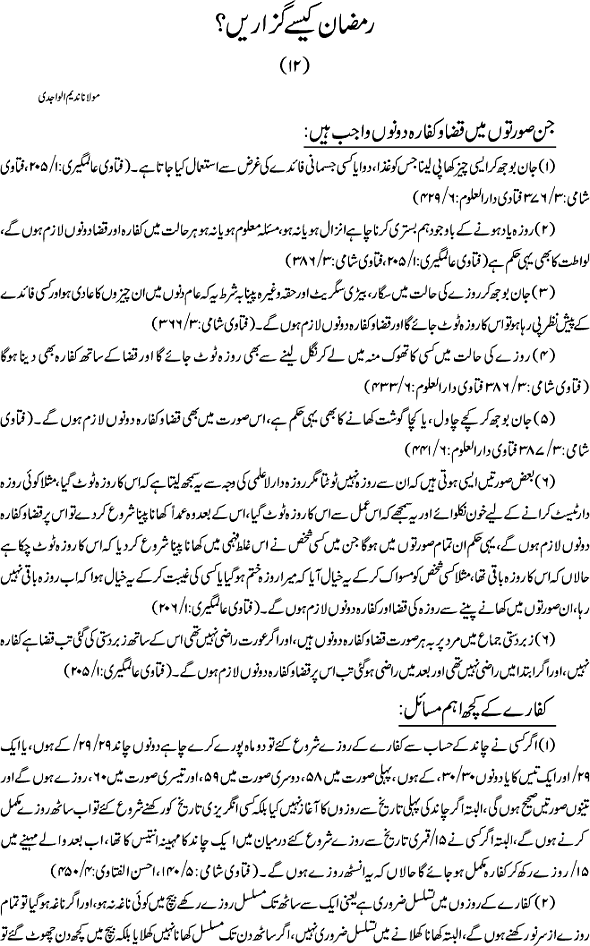 رمضان کیسے گزاریں؟
(۱۲)
مولانا ندیم الواجدی
جن صورتوں میں قضا و کفارہ دونوں واجب ہیں:
(۱) جان بوجھ کر ایسی چیز کھا پی لینا جس کو غذا، دوا یا کسی جسمانی فائدے کی غرض سے استعمال کیا جاتا ہے۔ (فتاوی عالمگیری:۱/ ۲۰۵، فتاوی
شامی:۳/ ۳۷۶ فتاوی دارالعلوم:۶/ ۴۲۹)
(۲) روزہ یاد ہونے کے باوجود ہم بستری کرنا چاہے انزال ہو یا نہ ہو، مسئلہ معلوم ہو یا نہ ہو ہر حالت میں کفارہ اور قضا دونوں لازم ہوں گے،
لواطت کا بھی یہی حکم ہے (فتاوی عالمگیری:۱/ ۲۰۵، فتاوی شامی:۳/ ۳۸۶)
(۳) جان بوجھ کر روزے کی حالت میں سگار، بیڑی سگریٹ اور حقہ وغیرہ پینا بہ شرط یہ کہ عام دنوں میں ان چیزوں کا عادی ہو اور کسی فائدے کے
پیش نظر پی رہا ہو تو اس کا روزہ ٹوٹ جائے گا اور قضا و کفارہ دونوں لازم ہوں گے۔ (فتاوی شامی:۳/ ۳۶۶)
(۴) روزے کی حالت میں کسی کا تھوک منہ میں لے کر نگل لینے سے بھی روزہ ٹوٹ جائے گا اور قضا کے ساتھ کفارہ بھی دینا ہوگا
(فتاوی شامی:۳/ ۳۸۶ فتاوی دارالعلوم:۶/ ۴۳۳)
(۵) جان بوجھ کر کچے چاول، یا کچا گوشت کھانے کا بھی یہی حکم ہے، اس صورت میں بھی قضا و کفارہ دونوں لازم ہوں گے۔ (فتاوی
شامی:۳/ ۳۸۷ فتاوی دارالعلوم:۶/ ۴۴۱)
(۶) بعض صورتیں ایسی ہوتی ہیں کہ ان سے روزہ نہیں ٹوٹتا مگر روزہ دار لاعلمی کی وجہ سے یہ سمجھ لیتا ہے کہ اس کا روزہ ٹوٹ گیا، مثلا کوئی روزہ
دار ٹیسٹ کرانے کے لیے خون نکلوائے اور یہ سمجھے کہ اس عمل سے اس کا روزہ ٹوٹ گیا، اس کے بعد وہ عمداً کھانا پینا شروع کر دے تو اس پر قضا و کفارہ
دونوں لازم ہوں گے، یہی حکم ان تمام صورتوں میں ہوگا جن میں کسی شخص نے اس غلط فہمی میں کھانا پینا شروع کر دیا کہ اس کا روزہ ٹوٹ چکا ہے
حالاں کہ اس کا روزہ باقی تھا، مثلا کسی شخص کو مسواک کر کے یہ خیال آیا کہ میرا روزہ ختم ہو گیا یا کسی کی غیبت کر کے یہ خیال ہوا کہ اب روزہ باقی نہیں
رہا، ان صورتوں میں کھانے پینے سے روزہ کی قضا اور کفارہ دونوں لازم ہوں گے۔ (فتاوی عالمگیری:۱/ ۲۰۶)
(۶) زبردستی جماع میں مرد پر بہ ہر صورت قضا و کفارہ دونوں ہیں، اور اگر عورت راضی نہیں تھی اس کے ساتھ زبردستی کی گئی تب قضا ہے کفارہ
نہیں، اور اگر ابتدا میں راضی نہیں تھی اور بعد میں راضی ہو گئی تب اس پر قضا و کفارہ دونوں لازم ہوں گے۔ (فتاوی عالمگیری:۱/ ۲۰۵)
کفارے کے کچھ اہم مسائل:
(۱) اگر کسی نے چاند کے حساب سے کفارے کے روزے شروع کئے تو دو ماہ پورے کرے چاہے دونوں چاند ۲۹/ ۲۹/ کے ہوں، یا ایک
۲۹/ اور ایک تیس کا یا دونوں ۳۰/ ۳۰، کے ہوں، پہلی صورت میں ۵۸، دوسری صورت میں ۵۹، اور تیسری صورت میں ۶۰، روزے ہوں گے اور
تینوں صورتیں صحیح ہوں گی، البتہ اگر چاند کی پہلی تاریخ سے روزوں کا آغاز نہیں کیا بلکہ کسی انگریزی تاریخ کو رکھنے شروع کئے تو اب ساٹھ روزے مکمل
کرنے ہوں گے، البتہ اگر کسی نے ۱۵/ قمری تاریخ سے روزے شروع کئے درمیان میں ایک چاند کا مہینہ انتیس کا تھا، اب بعد والے مہینے میں
۱۵/ روزے رکھ کر کفارہ مکمل ہو جائے گا حالاں کہ یہ انسٹھ روزے ہوں گے۔ (فتاوی شامی:۵/ ۱۴۰، احسن الفتاوی:۴/ ۴۵۰)
(۲) کفارے کے روزوں میں تسلسل ضروری ہے یعنی ایک سے ساٹھ تک مسلسل روزے رکھے بیچ میں کوئی ناغہ نہ ہو، اور اگر ناغہ ہو گیا تو تمام
روزے از سر نو رکھنے ہوں گے، البتہ کھانا کھلانے میں تسلسل ضروری نہیں، اگر ساٹھ دن تک مسلسل کھانا نہیں کھلایا بلکہ بیچ میں کچھ دن چھوٹ گئے تو